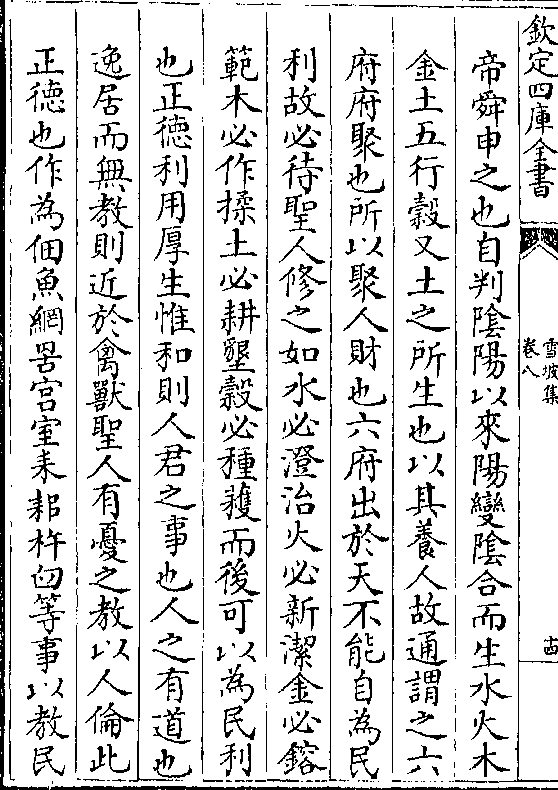 欽定四庫全書
雪坡集
卷八
十四
帝舜申之也自判陰陽以來陽變陰合而生水火木
金土五行穀又土之所生也以其養人故通謂之六
府府聚也所以聚人財也六府出於天不能自為民
利故必待聖人修之如水必澄治火必新潔金必鎔
範木必作揉土必耕墾穀必種穫而後可以為民利
也正德利用厚生惟和則人君之事也人之有道也
逸居而無教則近於禽獸聖人有憂之教以人倫此
正德也作為佃魚網罟宫室耒耜杵臼等事以教民